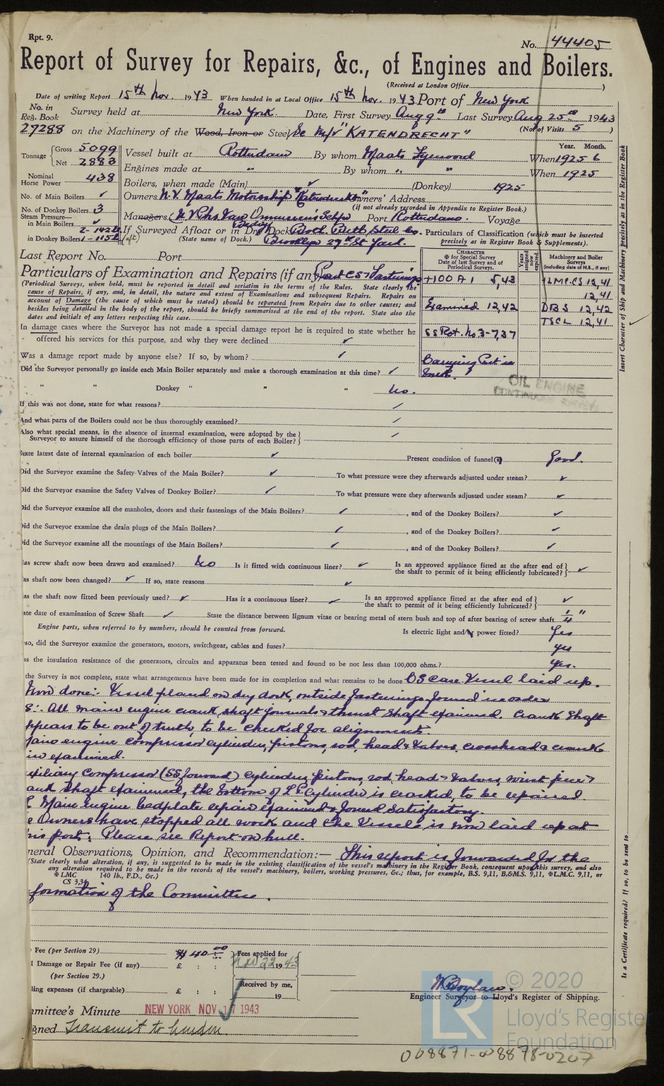 Rpt. 9.
No. 44405
Report of Survey for Repairs, &c., of Engines and Boilers.
(Received at London Office
Date of writing Report 15th Nov. 1943 When handed in at Local Office 15th Nov. 1943 Port of New York
No. in Reg. Book Survey held at New York Date, First Survey Aug 9th Last Survey Aug 25th 1943
27288 on the Machinery of the Wood, Iron or Steel M/V "KATENDRECHT" (No. of Visits 5)
Tonnage Gross 5099 Net 2883
Vessel built at Rotterdam By whom Maats Fijenoord When 1925 6
Engines made at " By whom " " When 1925
Nominal Horse Power 438
Boilers, when made (Main) ✓ (Donkey) 1925
No. of Main Boilers ✓
Owners N.V. Maats Motorship "Katendrecht" Owners' Address
(if not already recorded in Appendix to Register Book.)
No. of Donkey Boilers 3
Managers Port Rotterdam Voyage
Steam Pressure in Main Boilers ✓
in Donkey Boilers
If Surveyed Afloat or in Dry Dock
(State name of Dock.) Brooklyn 27th St. Yard.
Particulars of Classification (which must be inserted precisely as in Register Book & Supplements).
Last Report No. Port
Particulars of Examination and Repairs (if any)
(Periodical Surveys, when held, must be reported in detail and seriatim in the terms of the Rules. State clearly the cause of Repairs, if any, and, in detail, the nature and extent of Examinations and subsequent Repairs. Repairs on account of Damage (the cause of which must be stated) should be separated from Repairs due to other causes; and besides being detailed in the body of the report, should be briefly summarised at the end of the report. State also the dates and initials of any letters respecting this case.
CHARACTER
Machinery and Boiler Surveys
+100 A1 5,43
+LMC.CS 12,41
12,41
Examined 12,42
DBS 12,42
TSCL 12,41
SS Rot. No 3-7,37
In damage cases where the Surveyor has not made a special damage report he is required to state whether he
offered his services for this purpose, and why they were declined ✓
Was a damage report made by anyone else? If so, by whom? ✓
Did the Surveyor personally go inside each Main Boiler separately and make a thorough examination at this time? ✓
OIL ENGINE
" " Donkey " " " No.
If this was not done, state for what reasons? ✓
And what parts of the Boilers could not be thus thoroughly examined? ✓
Also what special means, in the absence of internal examination, were adopted by the
Surveyor to assure himself of the thorough efficiency of those parts of each Boiler? ✓
State latest date of internal examination of each boiler ✓ Present condition of funnel(s) Good.
Did the Surveyor examine the Safety-Valves of the Main Boiler? ✓ To what pressure were they afterwards adjusted under steam? ✓
Did the Surveyor examine the Safety Valves of Donkey Boiler? ✓ To what pressure were they afterwards adjusted under steam? ✓
Did the Surveyor examine all the manholes, doors and their fastenings of the Main Boilers? ✓, and of the Donkey Boilers? ✓
Did the Surveyor examine the drain plugs of the Main Boilers? ✓, and of the Donkey Boilers? ✓
Did the Surveyor examine all the mountings of the Main Boilers? ✓, and of the Donkey Boilers? ✓
as screw shaft now been drawn and examined? No Is it fitted with continuous liner? ✓ Is an approved appliance fitted at the after end of the shaft to permit of it being efficiently lubricated? ✓
as shaft now been changed? ✓ If so, state reasons ✓
as the shaft now fitted been previously used? ✓ Has it a continuous liner? ✓ Is an approved appliance fitted at the after end of the shaft to permit of it being efficiently lubricated? ✓
ate date of examination of Screw Shaft ✓ State the distance between lignum vitae or bearing metal of stern bush and top of after bearing of screw shaft 1/4"
Engine parts, when referred to by numbers, should be counted from forward. Is electric light and/or power fitted? Yes
so, did the Surveyor examine the generators, motors, switchgear, cables and fuses? Yes
as the insulation resistance of the generators, circuits and apparatus been tested and found to be not less than 100,000 ohms? Yes.
the Survey is not complete, state what arrangements have been made for its completion and what remains to be done CS Case Vessel laid up.
Now done:- Vessel placed on dry dock, outside fastenings found in order
All main engine crank shaft journals & thrust shaft examined. Crank Shaft
appears to be out of truth, to be checked for alignment.
Main engine compressor cylinders, pistons, rods, heads & valves, crossheads & cranks
examined.
auxiliary compressor (SS forward) cylinders, pistons, rod, heads & valves, wrist piece &
crank shaft examined, the bottom of L.P. Cylinder is cracked, to be repaired.
Main Engine bedplate repair examined & found satisfactory.
Owners have stopped all work and the Vessel is now laid up at
this port. Please see Report on hull.
General Observations, Opinion, and Recommendation:— This report is forwarded for the
(State clearly what alteration, if any, is suggested to be made in the existing classification of the vessel's machinery in the Register Book, consequent upon this survey, and also any alteration required to be made in the records of the vessel's machinery, boilers, working pressures, &c.; thus, for example, B.S. 9,11, B&M.S. 9,11, LMC 9,11, or
LMC 140 lb., F.D., &c.)
CS 3,34
information of the Committee.
Fee (per Section 29) $40.00 Fees applied for Nov 22 1943
Damage or Repair Fee (if any) £ : :
(per Section 29.)
Received by me,
ling expenses (if chargeable) £ : : 19
Engineer Surveyor to Lloyd's Register of Shipping.
mmittee's Minute NEW YORK NOV 17 1943
gned Transmit to London
Insert Character of Ship and Machinery precisely as in the Register Book
Is a Certificate required? If so, to be sent to
LR © 2020
Lloyd's Register
Foundation
008871-008878-0207